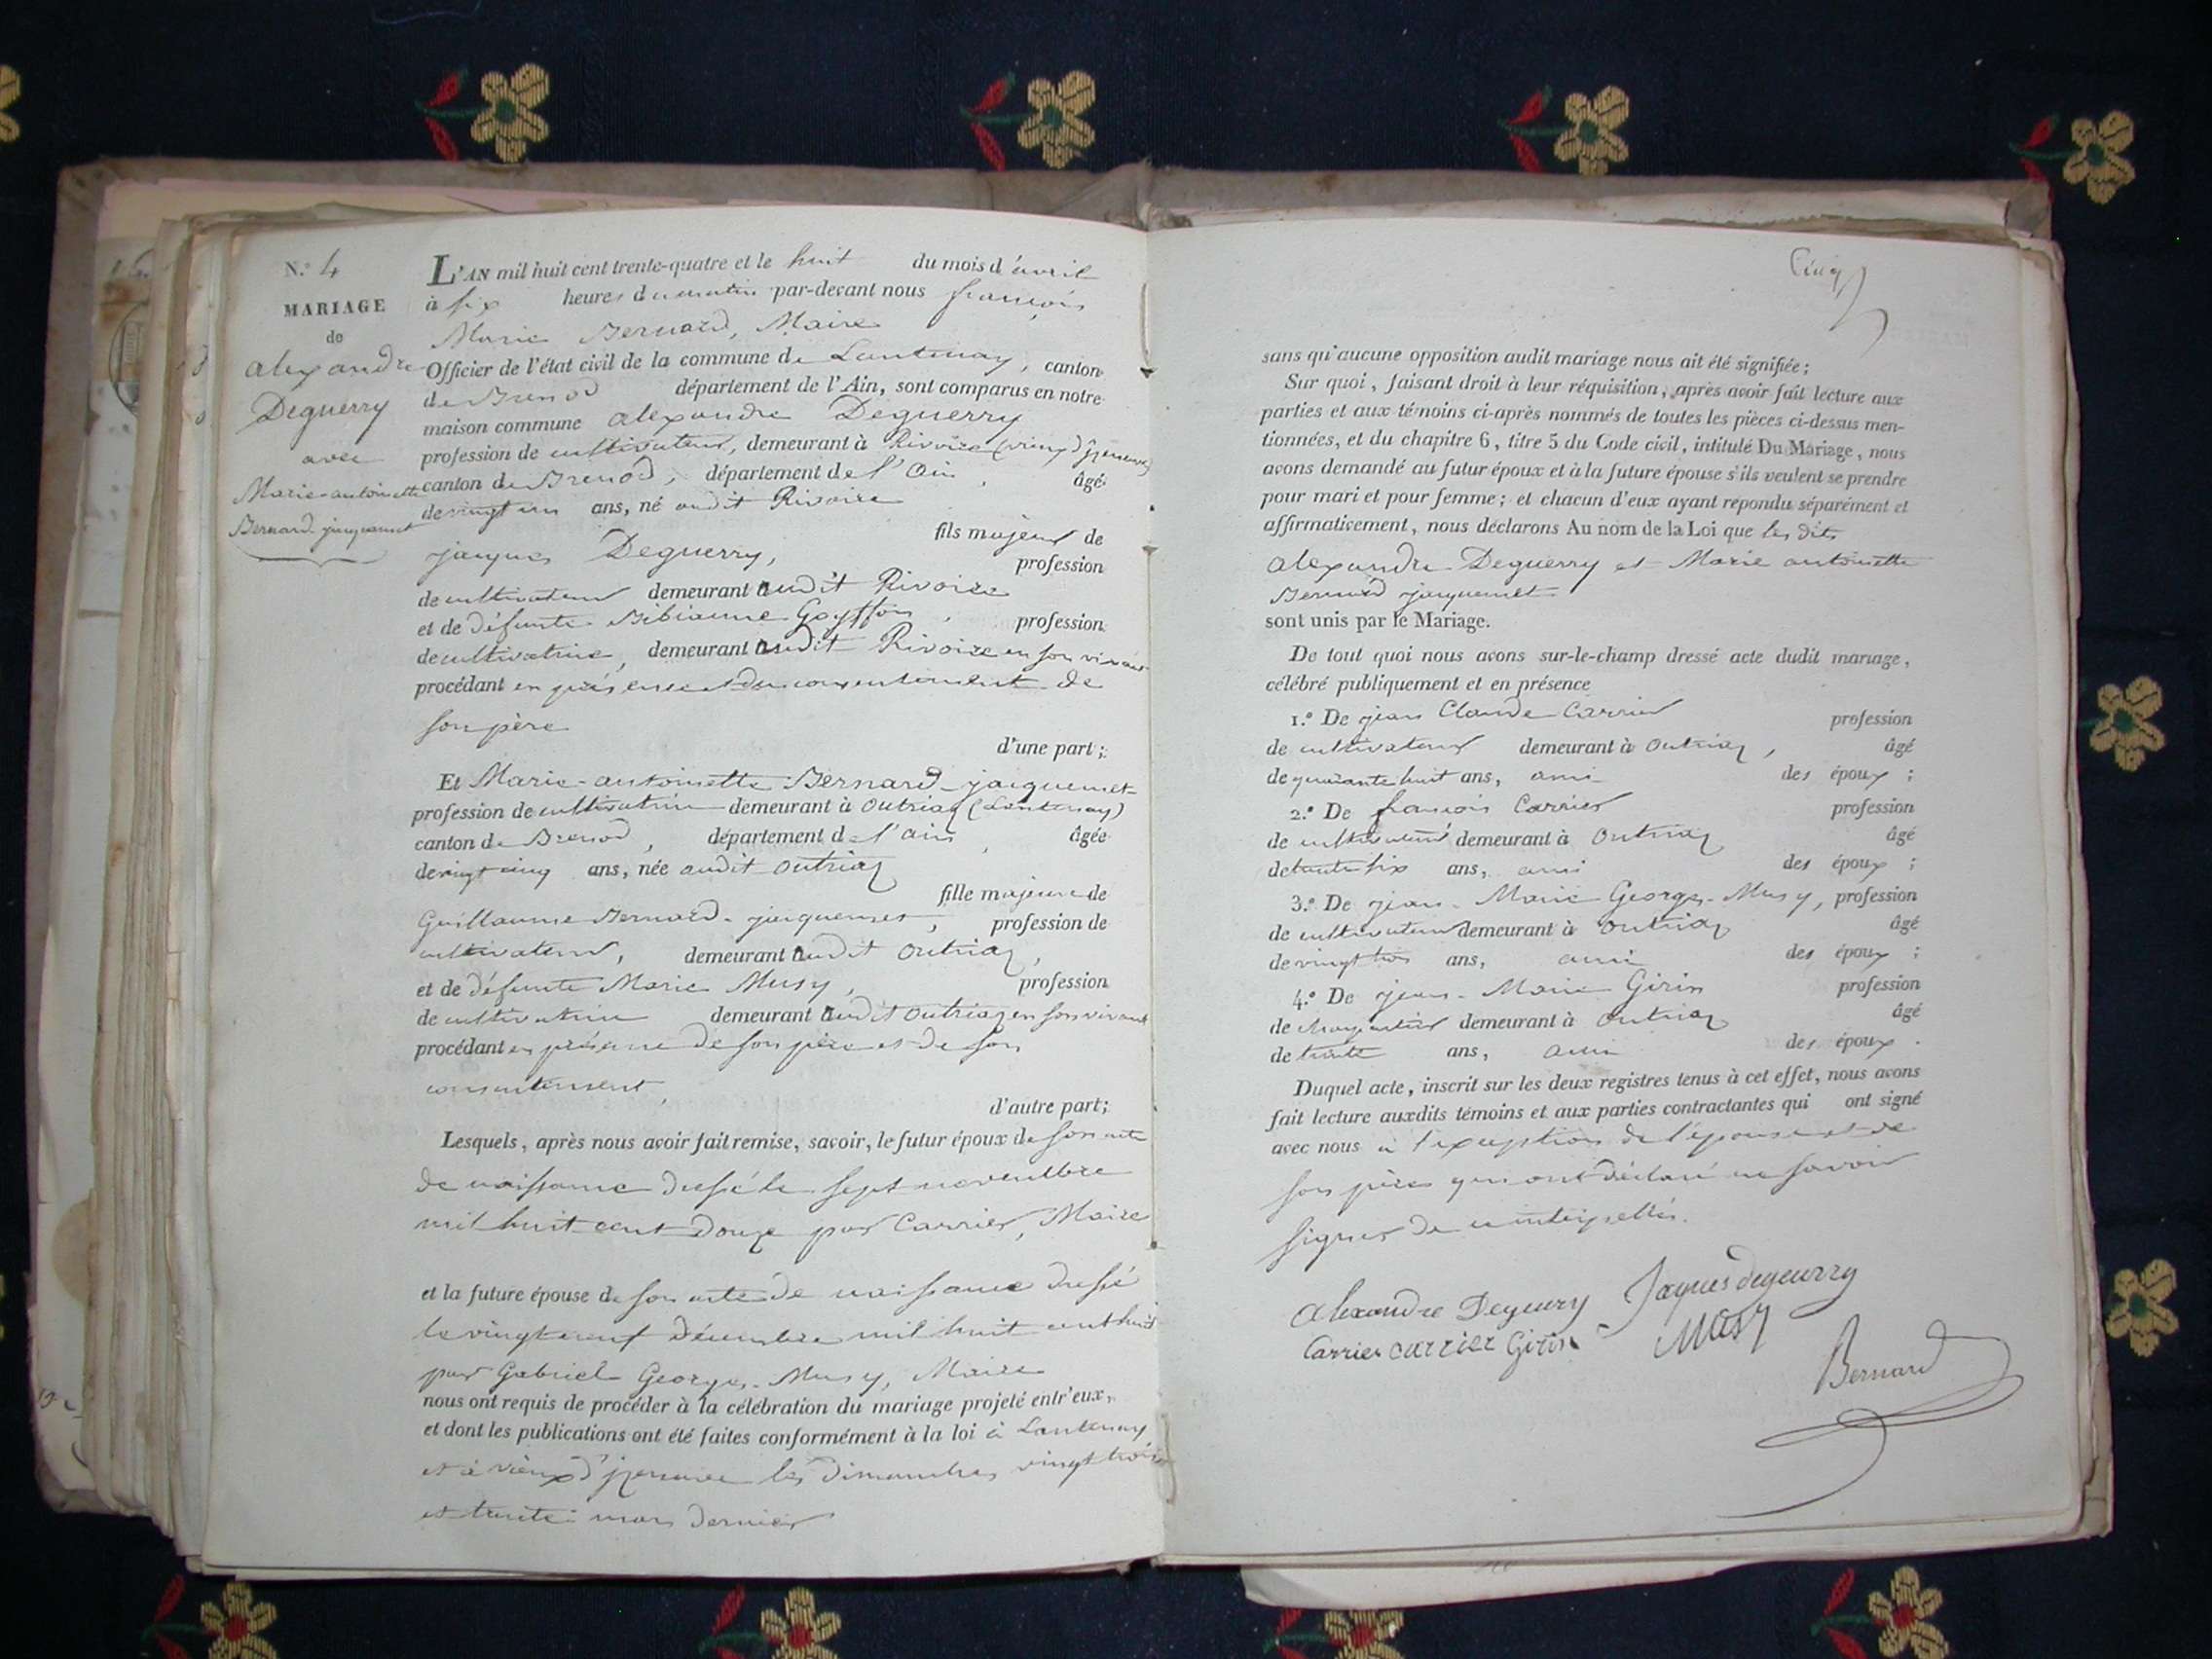 N.° 4
MARIAGE
de
alexandre
Deguerry
avec
Marie-antoinette
Bernard-jacquemet
L'AN mil huit cent trente-quatre et le huit du mois d'avril
à six heures du matin par-devant nous françois
Marie Bernard, Maire
Officier de l'état civil de la commune de Lantenay, canton
de Brenod département de l'Ain, sont comparus en notre
maison commune alexandre Deguerry
profession de cultivateur, demeurant à Rivoire
canton de Brenod, département de l'Ain, âgé
de vingt un ans, né audit Rivoire
fils majeur de
jacques Deguerry, profession
de cultivateur demeurant audit Rivoire
et de défunte Bibianne Goyffon, profession
de cultivatrice, demeurant audit Rivoire en son vivant
procédant en présence et du consentement de
son père
d'une part;
Et Marie-antoinette Bernard-jacquemet
profession de cultivatrice demeurant à Outriaz (Lantenay)
canton de Brenod, département de l'ain, âgée
de vingt cinq ans, née audit Outriaz
fille majeure de
Guillaume Bernard-jacquemet, profession de
cultivateur, demeurant audit Outriaz,
et de défunte Marie Musy, profession
de cultivatrice demeurant audit Outriaz en son vivant
procédant en présence de son père et de son
consentement,
d'autre part;
Lesquels, après nous avoir fait remise, savoir, le futur époux de son acte
de naissance dressé le sept novembre
mil huit cent douze par Carrier, Maire
et la future épouse de son acte de naissance dressé
le vingt neuf décembre mil huit cent huit
par Gabriel Georges-Musy, Maire
nous ont requis de procéder à la célébration du mariage projeté entr'eux,
et dont les publications ont été faites conformément à la loi à Lantenay
et à vieux d'izenave les dimanches vingt trois
et trente mars dernier
Cinq
sans qu'aucune opposition audit mariage nous ait été signifiée;
Sur quoi, faisant droit à leur réquisition, après avoir fait lecture aux
parties et aux témoins ci-après nommés de toutes les pièces ci-dessus men-
tionnées, et du chapitre 6, titre 5 du Code civil, intitulé Du Mariage, nous
avons demandé au futur époux et à la future épouse s'ils veulent se prendre
pour mari et pour femme; et chacun d'eux ayant répondu séparément et
affirmativement, nous déclarons Au nom de la Loi que les dits
alexandre Deguerry et Marie antoinette
Bernard jacquemet
sont unis par le Mariage.
De tout quoi nous avons sur-le-champ dressé acte dudit mariage,
célébré publiquement et en présence
1.° De jean Claude Carrier profession
de cultivateur demeurant à Outriaz, âgé
de quarante huit ans, ami des époux;
2.° De françois Carrier profession
de cultivateur demeurant à Outriaz âgé
de trente six ans, ami des époux;
3.° De jean-Marie Georges-Musy, profession
de cultivateur demeurant à Outriaz âgé
de vingt trois ans, ami des époux;
4.° De jean-Marie Girin profession
de charpentier demeurant à Outriaz âgé
de trente ans, ami des époux.
Duquel acte, inscrit sur les deux registres tenus à cet effet, nous avons
fait lecture auxdits témoins et aux parties contractantes qui ont signé
avec nous à l'exception de l'épouse et de
son père qui ont déclaré ne savoir
signer de ce interpellés.
Alexandre Deguery Jaques degeurry
Carrier carrier Girin Musy
Bernard